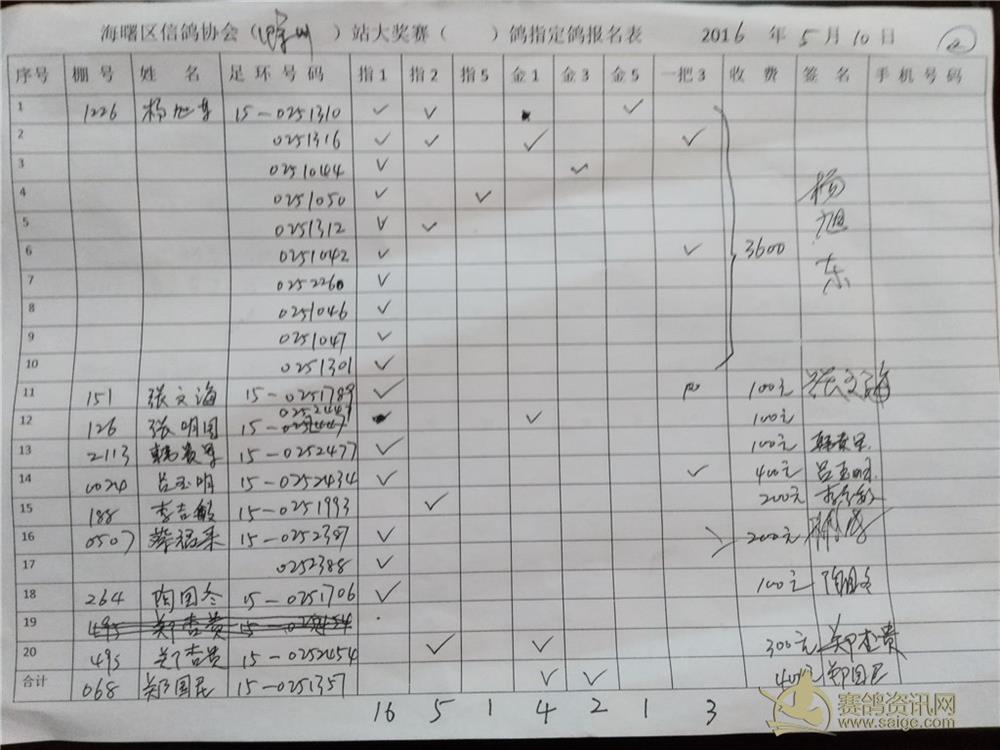 海曙区信鸽协会（滁州）站大奖赛（ ）鸽指定鸽报名表 2016 年 5 月 10 日 ②
序号 棚号 姓名 足环号码 指1 指2 指5 金1 金3 金5 一把3 收费 签名 手机号码
1 1226 杨旭东 15-0251310 ✓ ✓ ✓
2 0251316 ✓ ✓ ✓ ✓
3 0251044 ✓ ✓
4 0251050 ✓ ✓
5 0251312 ✓ ✓
6 0251042 ✓ ✓ 3600 杨旭东
7 0252260 ✓
8 0251046 ✓
9 0251047 ✓
10 0251301 ✓
11 151 张文海 15-0251789 ✓ 100元 张文海
12 126 张明国 15- ✓ 100元
13 2113 韩贵军 15-0252477 ✓ 100元 韩贵军
14 0024 吕玉明 15-0252434 ✓ ✓ 400元 吕玉明
15 188 李吉敏 15-0251993 ✓ 200元 李吉敏
16 0507 15-0252387 ✓ 200元
17 0252388 ✓
18 264 陶国冬 15-0251706 ✓ 100元 陶国冬
19 495 郑杏贵
20 495 郑杏贵 15-0252454 ✓ ✓ 300元 郑杏贵
合计 068 郑国民 15-0251357 ✓ ✓ 400元 郑国民
16 5 1 4 2 1 3
赛鸽资讯网
www.saige.com